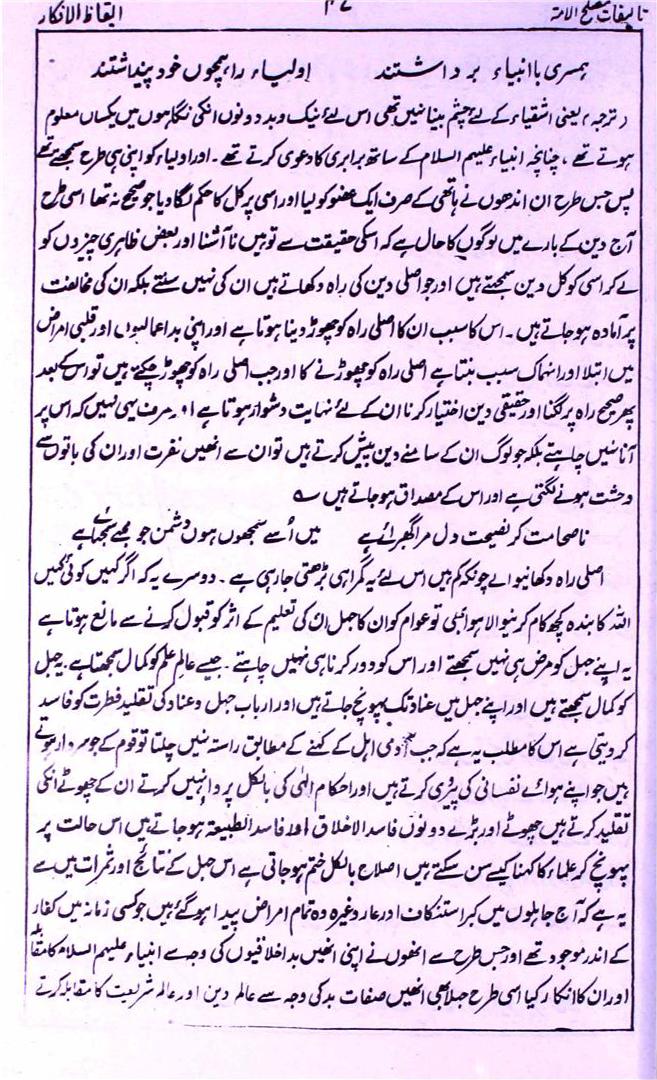 تالیفات مصلح الامۃ ۴۷ ایقاظ الافکار
ہمسری با انبیاء برداشتند اولیاء را ہمچوں خود پنداشتند
(ترجمہ) یعنی اشقیاء کے لئے چشم بینا نہیں تھی اس لئے نیک و بد دونوں انکی نگاہوں میں یکساں معلوم
ہوتے تھے، چنانچہ انبیاء علیہم السلام کے ساتھ برابری کا دعویٰ کرتے تھے۔ اور اولیاء کو اپنی ہی طرح سمجھتے تھے
پس جس طرح ان اندھوں نے ہاتھی کے صرف ایک عضو کو لیا اور اسی پر کل کا حکم لگا دیا جو صحیح نہ تھا اسی طرح
آج دین کے بارے میں لوگوں کا حال ہے کہ اسکی حقیقت سے تو ہیں ناآشنا اور بعض ظاہری چیزوں کو
لے کر اسی کو کل دین سمجھتے ہیں اور جو اصلی دین کی راہ دکھاتے ہیں ان کی نہیں سنتے بلکہ ان کی مخالفت
پر آمادہ ہو جاتے ہیں۔ اس کا سبب ان کا اصلی راہ کو چھوڑ دینا ہوتا ہے اور اپنی بداعمالیوں اور قلبی امراض
میں ابتلا اور انہماک سبب بنتا ہے اصلی راہ کو چھوڑنے کا اور جب اصلی راہ کو چھوڑ چکتے ہیں تو اس کے بعد
پھر صحیح راہ پر لگنا اور حقیقی دین اختیار کرنا ان کے لئے نہایت دشوار ہوتا ہے اور صرف یہی نہیں کہ اس پر
آنا نہیں چاہتے بلکہ جو لوگ ان کے سامنے دین پیش کرتے ہیں تو ان سے انھیں نفرت اور ان کی باتوں سے
وحشت ہونے لگتی ہے اور اس کے مصداق ہو جاتے ہیں ؎
ناصحا مت کر نصیحت دل مرا گھبرائے ہے میں اُسے سمجھوں ہوں دشمن جو مجھے سمجھائے ہے
اصلی راہ دکھانیوالے چونکہ کم ہیں اس لئے یہ گمراہی بڑھتی جارہی ہے۔ دوسرے یہ کہ اگر کہیں کوئی کہیں
اللہ کا بندہ کچھ کام کرنیوالا ہوا بھی تو عوام کو ان کا جہل ان کی تعلیم کے اثر کو قبول کرنے سے مانع ہوتا ہے
یہ اپنے جہل کو مرض ہی نہیں سمجھتے اور اس کو دور کرنا ہی نہیں چاہتے۔ جیسے عالم علم کو کمال سمجھتا ہے یہ جہل
کو کمال سمجھتے ہیں اور اپنے جہل میں عناد تک پہونچ جاتے ہیں اور ارباب جہل و عناد کی تقلید فطرت کو فاسد
کر دیتی ہے اس کا مطلب یہ ہے کہ جب آدمی اہل کے کہنے کے مطابق راستہ نہیں چلتا تو قوم کے جو سردار ہوتے
ہیں جو اپنے ہوائے نفسانی کی پیروی کرتے ہیں اور احکام الٰہی کی بالکل پروا نہیں کرتے ان کے چھوٹے انکی
تقلید کرتے ہیں چھوٹے اور بڑے دونوں فاسد الاخلاق اور فاسد الطبیعۃ ہو جاتے ہیں اس حالت پر
پہونچ کر علماء کا کہنا کیسے سن سکتے ہیں اصلاح بالکل ختم ہو جاتی ہے اس جہل کے نتائج اور ثمرات میں سے
یہ ہے کہ آج جاہلوں میں کبر استنکاف اور عار وغیرہ وہ تمام امراض پیدا ہو گئے ہیں جو کسی زمانہ میں کفار
کے اندر موجود تھے اور جس طرح سے انھوں نے اپنی انھیں بداخلاقیوں کی وجہ سے انبیاء علیہم السلام کا مقابلہ
اور ان کا انکار کیا اسی طرح جہلا بھی انھیں صفات بد کی وجہ سے عالم دین اور عالم شریعت کا مقابلہ کرتے